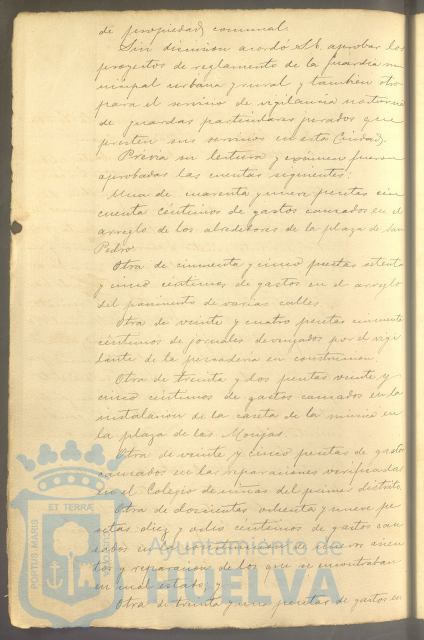 de propiedad comunal.
Sin discusion acordó S.E. aprobar los
proyectos de reglamento de la guardia mu
nicipal urbana y rural y tambien otro
para el servicio de vigilancia nocturna
de guardas particulares jurados que
presten sus servicios en esta Ciudad.
Prévia su lectura y exámen fueron
aprobadas las cuentas siguientes:
Una de cuarenta y nueve pesetas cin
cuenta céntimos de gastos causados en el
arreglo de los alrededores de la plaza de San
Pedro.
Otra de cincuenta y cinco pesetas setenta
y cinco centimos de gastos en el arreglo
del pavimento de varias calles.
Otra de veinte y cuatro pesetas cincuenta
centimos de jornales devengados por el vigi
lante de la pescaderia en construccion.
Otra de treinta y dos pesetas veinte y
cinco centimos de gastos causados en la
instalacion de la caseta de la música en
la plaza de las Monjas.
Otra de veinte y cinco pesetas de gastos
causados en las reparaciones verificadas
en el Colegio de niñas del primer distrito.
Otra de doscientas ochenta y nueve pe
setas diez y ocho centimos de gastos cau
sados en la construccion de nuevos asien
tos y reparacion de los que se encontraban
en mal estado; y
Otra de treinta y una pesetas de gastos en
PORTUS MARIS ET TERRAE CUSTODIA
Ayuntamiento de
HUELVA